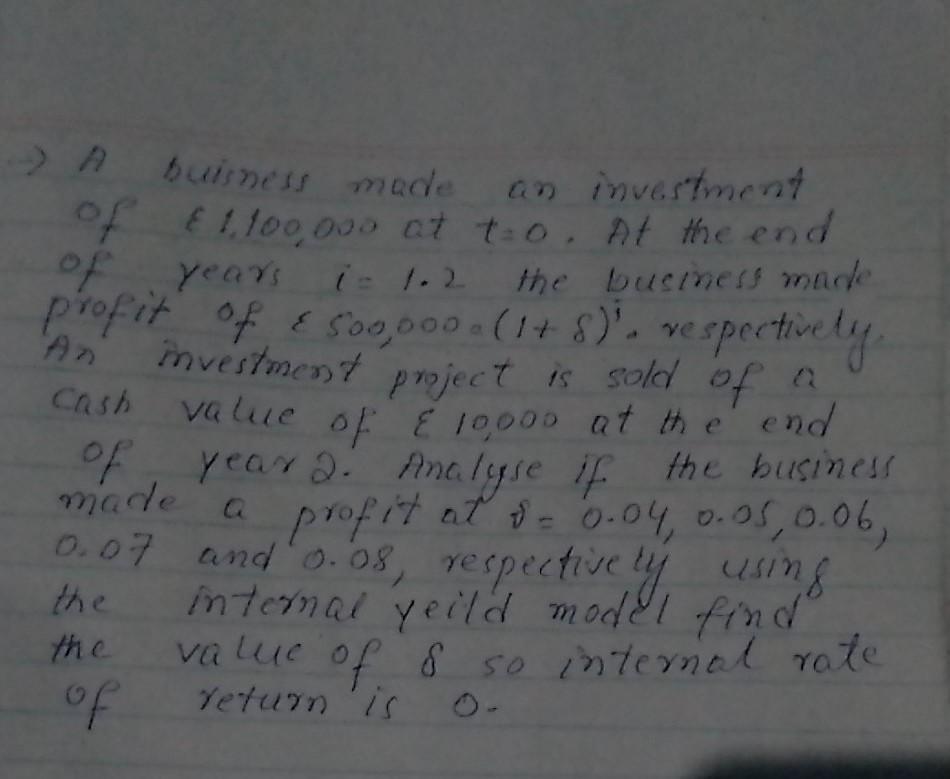 → A buisness made an investment
of £ 1,100,000 at t=0. At the end
of years i = 1.2 the business made
profit of £ 500,000 . (1+ δ)ⁱ. respectively.
An investment project is sold of a
cash value of £ 10,000 at the end
of year 2. Analyse if the business
made a profit at δ = 0.04, 0.05, 0.06,
0.07 and 0.08, respectively using
the internal yeild model find
the value of δ so internal rate
of return is 0.